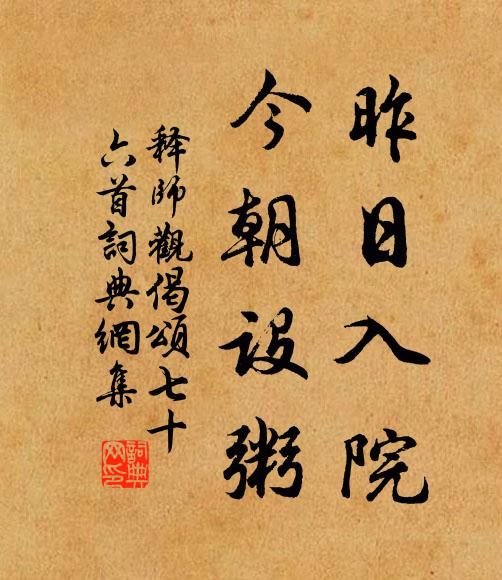 昨日入院
今朝设粥
释师觀偈頌七十
六首詞典網集
詞典网印